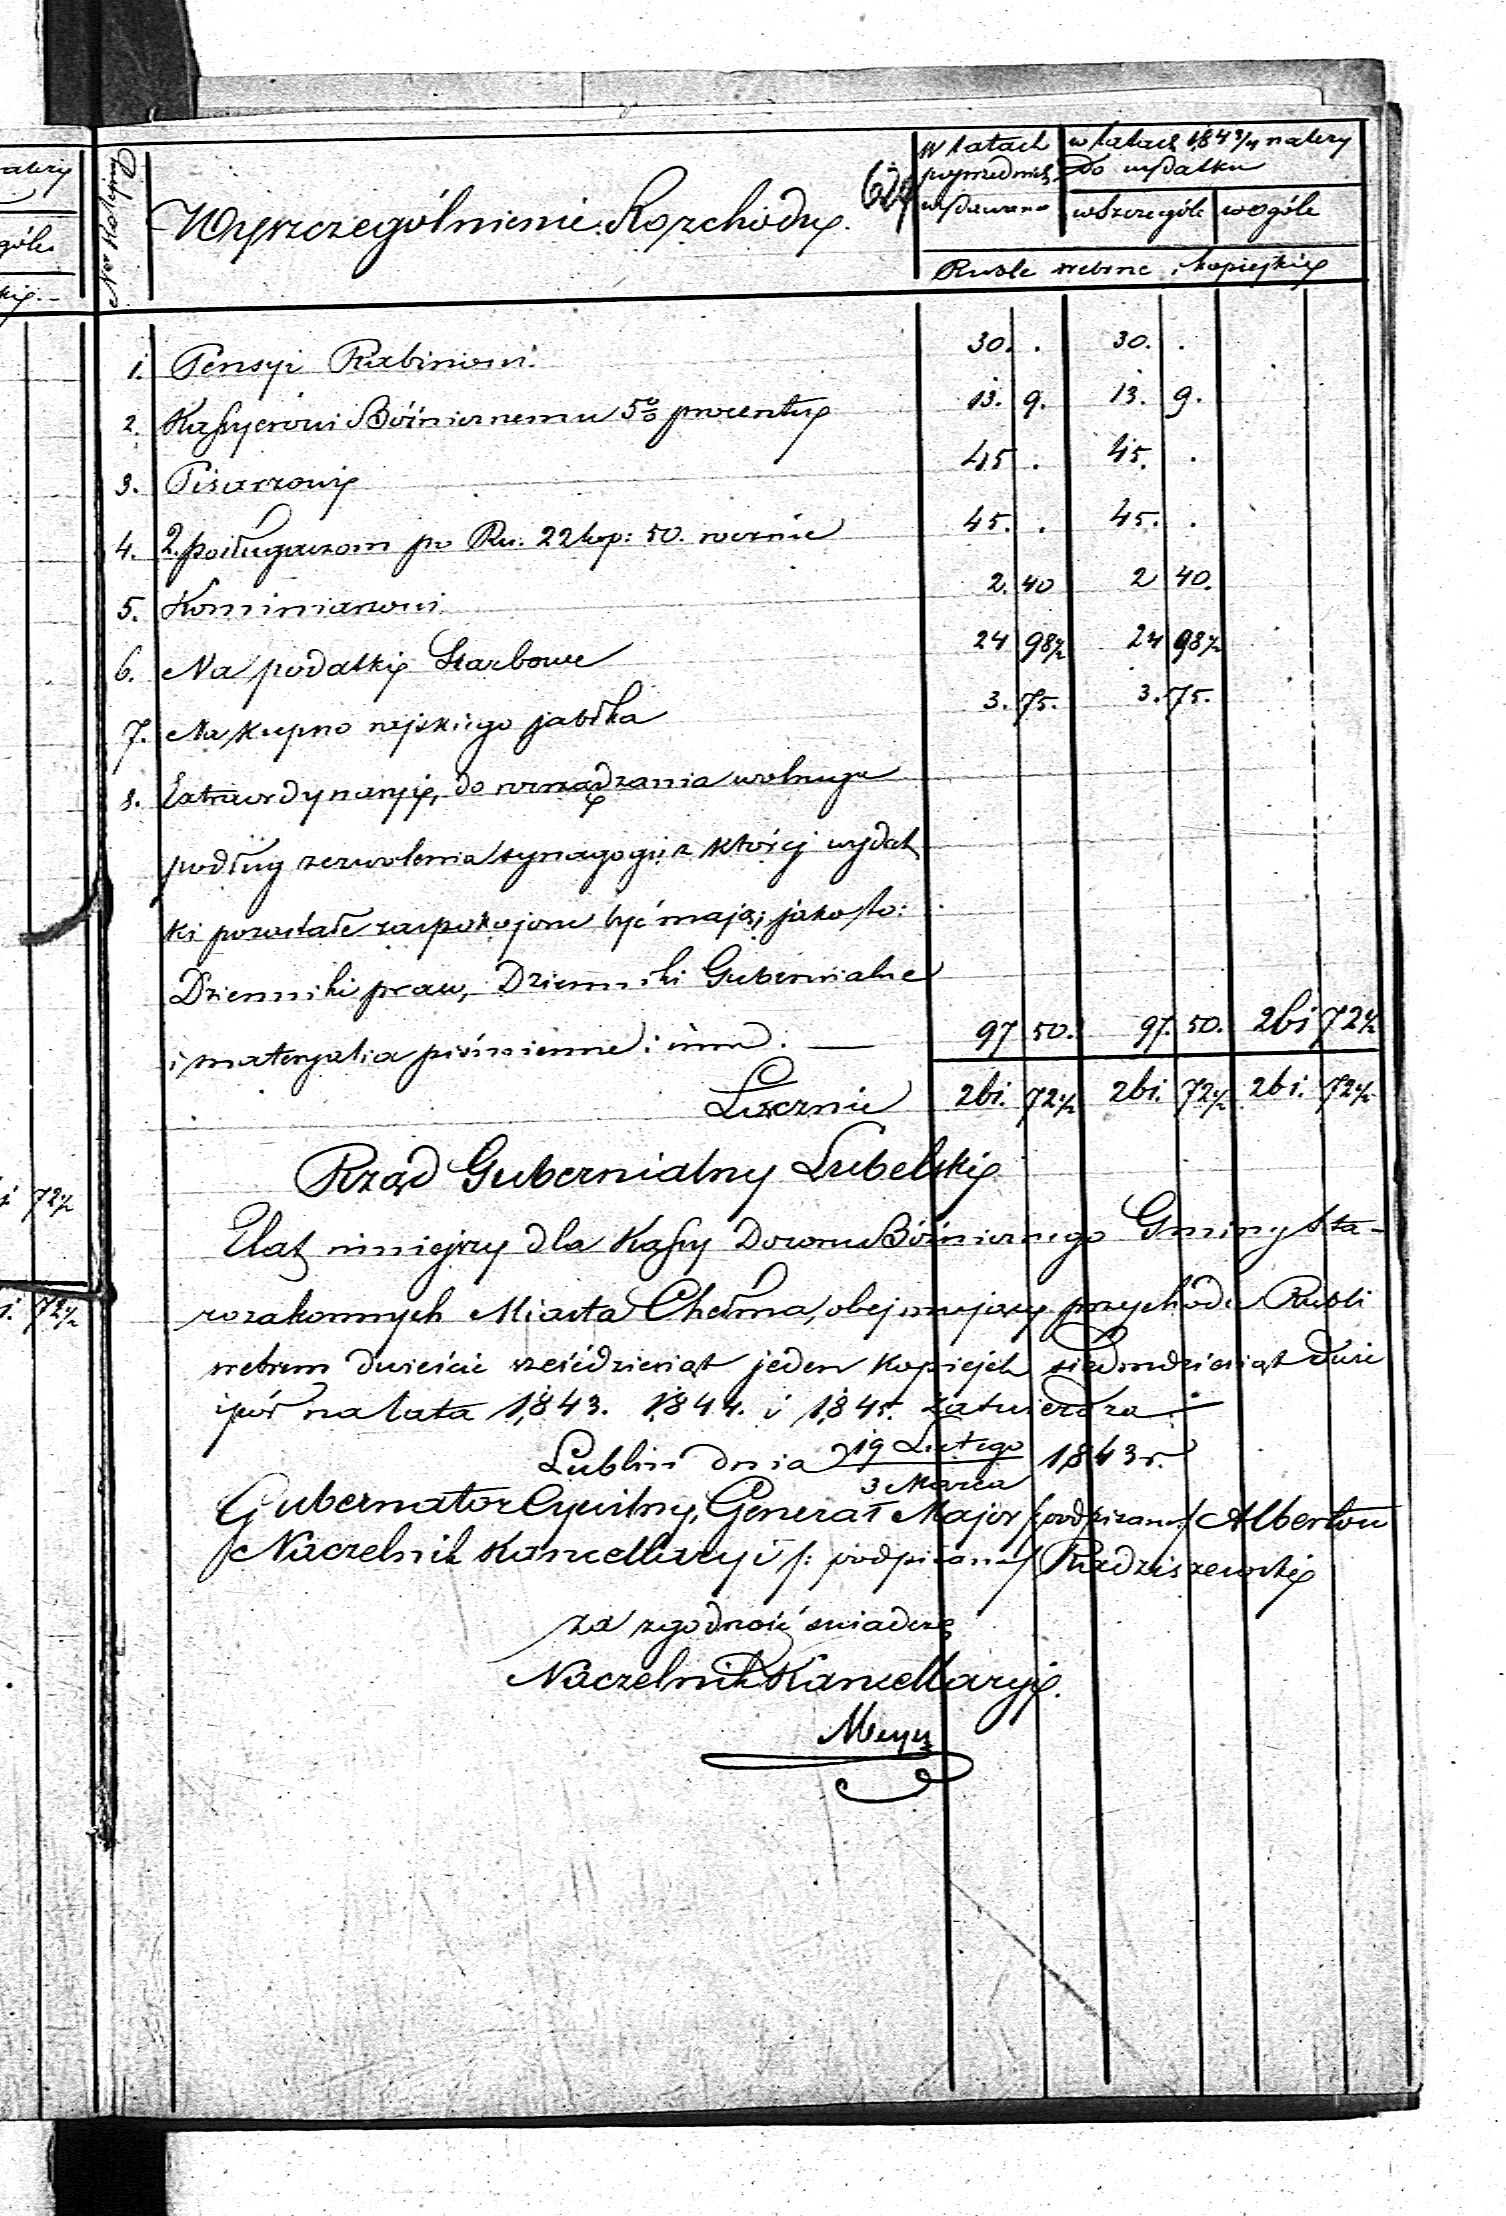 Nr kolejny
Wyszczególnienie Rozchody.
W latach
poprzednich
wydawano
w latach 1843/4 należy
Do wydatku
wszczególe
wogóle
Ruble srebrne i kopiejki
1. Pensyi Rabinowi. 30. . 30. .
2. Kassyerowi Bóżnicznemu 5% procenty 13. 9. 13. 9.
3. Pisarzowi 45 . 45. .
4. 2. posługaczom po Rs: 22 kop: 50. rocznie 45. . 45. .
5. Kominiarzowi 2. 40 2 40.
6. Na podatki Skarbowe 24 98½ 24 98½
7. Na kupno rajskiego jabłka 3. 75. 3. 75.
8. Extraordynaryi, do rozrządzania wolnego
podług zezwolenia synagogi z której wydat
ki pozostałe zaspokojone być mają; jako to:
Dzienniki praw, Dzienniki Gubernialne
i materyalia piśmienne i inne. — 97 50. 97. 50. 261 72½
Łącznie 261. 72½ 261. 72½ 261. 72½
Rząd Gubernialny Lubelski
Etat niniejszy dla Kassy Dozoru Bóżnicznego Gminy Sta-
rozakonnych Miasta Chełma, obejmujący przychodu Rubli
srebrem dwieście sześćdziesiąt jeden kopiejek siedmdziesiąt dwie
i pół na lata 1843. 1844. i 1845. zatwierdza.—
Lublin dnia 19 Lutego / 3 Marca 1843 r.
Gubernator Cywilny, Generał Major /podpisano/ Albertow
Naczelnik Kancellaryi /: podpisano/ Radziszewski
za zgodność świadczę
Naczelnik Kancellaryi.
72½
72½